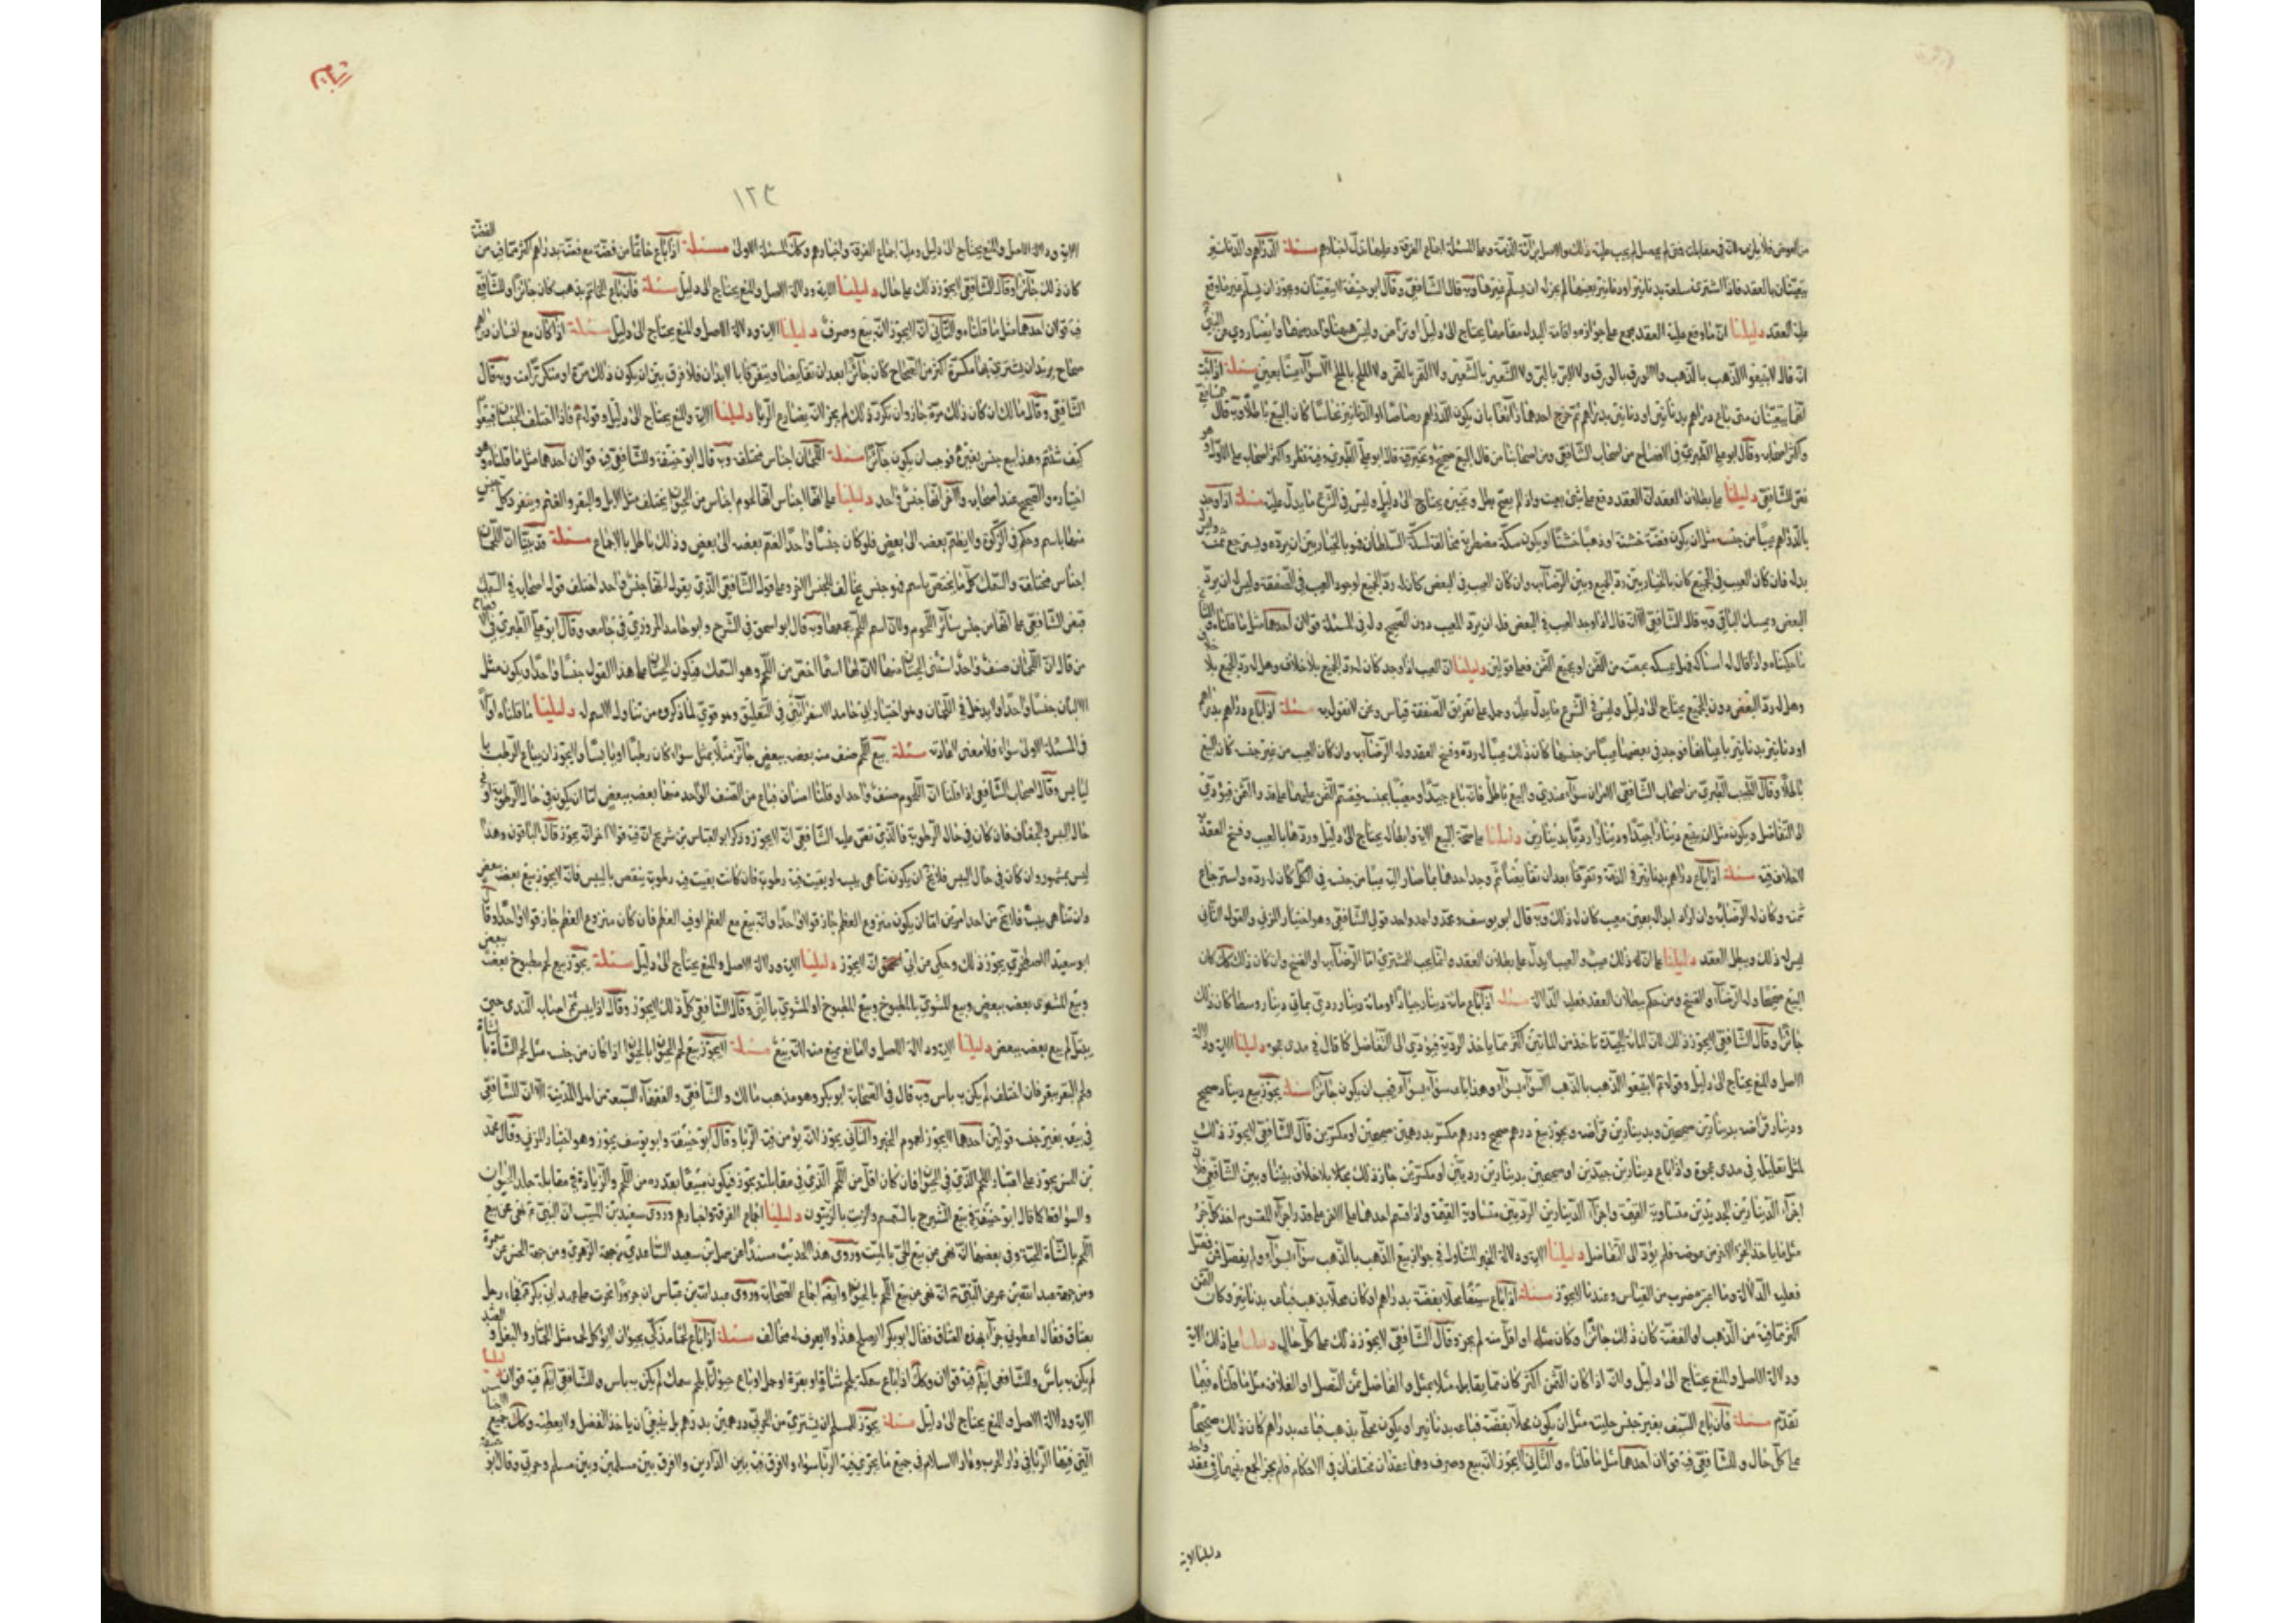 من العوض فلا يلزمه لانه في مقابلة وفق لم يحصل لم يجب عليه ذلك والاصل براءة الذمة وعلى المسئلة اجماع الفرقة وعليها تدل اخبارهم مسئلة الدراهم والدنانير
يتعينان بالعقد فاذا اشترى سلعة بدنانير او دنانير بعينها لم يجز له ان يسلم غيرها وبه قال الشافعي وقال ابو حنيفة لا يتعينان ويجوز ان يسلم غير ما وقع
عليه العقد دليلنا ان ما وقع عليه العقد مجمع على جوازه واقامة البدل مقامها يحتاج الى دليل او تراض وليس هيهنا واحد منها وايضا روي عن النبي
انه قال لا تبيعوا الذهب بالذهب ولا الورق بالورق ولا البر بالبر ولا الشعير بالشعير ولا التمر بالتمر ولا الملح بالملح الا سواء عينا بعين مسئلة اذا ثبت
انها يتعينان متى باع دراهم بدنانير او دنانير بدراهم ثم خرج احدهما زائفا بان يكون الدراهم رصاصا او الدنانير نحاسا كان البيع باطلا وبه قال
واكثر اصحابه وقال ابو علي الطبري في الافصاح من اصحاب الشافعي ومن اصحابنا من قال البيع صحيح ويخير فيه قال ابو علي الطبري وفيه نظر واكثر اصحابه على الاول وهو
نص الشافعي دليلنا على بطلان العقد ان العقد وقع على شئ بعينه واذا لم يصح بطل وتخييره يحتاج الى دليل وليس في الشرع ما يدل عليه مسئلة اذا وجد
بالدراهم عيبا من جنسه مثل ان يكون فضة خشنة او ذهبا خشنا او يكون سكة مضطربة مخالفة لسكة السلطان فهو بالخيار بين ان يرده ويسترجع ثمنه وليس له
بدله فان كان العيب في الجميع كان بالخيار بين رد الجميع وبين الرضا به وان كان العيب في البعض كان له رد الجميع لوجود العيب في الصفقة وليس له ان يرد
البعض ويمسك الباقي وبه قال الشافعي الا انه قال اذا وجد العيب في البعض فله ان يرد المعيب دون الصحيح وله في المسئلة قولان احدهما مثل ما قلناه والثاني
ما حكيناه واذا قال له امساكه فهل يمسكه بحصته من الثمن او بجميع الثمن فعلى قولين دليلنا ان العيب اذا وجد كان له رد الجميع بلا خلاف وهل له رد الجميع بلا خلاف
وهل له رد البعض دون الجميع يحتاج الى دليل وليس في الشرع ما يدل عليه وحمله على تفريق الصفقة قياس ونحن لا نقول به مسئلة اذا باع دراهم بدراهم
او دنانير بدنانير باعيانها فوجد في بعضها عيبا من جنسها كان ذلك عيبا له رده وفسخ العقد وله الرضا به وان كان العيب من غير جنسه كان البيع
باطلا وقال الطيب الطبري من اصحاب الشافعي الامران سواء عندي والبيع باطل فانه باع جيدا ومعيبا بجنسه فيقسم الثمن عليهما فيؤدي
الى التفاضل ويكون مثل ان يبيع دينارا جيدا ودينارا رديا بدينارين دليلنا على صحة البيع الاية وابطاله يحتاج الى دليل وردها بالعيب وفسخ العقد
لا خلاف فيه مسئلة اذا باع دراهم بدنانير في الذمة وتفرقا بعد ان تقابضا ثم وجد احدهما بما صار اليه عيبا من جنسه في الكل كان له رده واسترجاع
ثمنه وكان له الرضا به وان اراد ابداله بغير معيب كان له ذلك وبه قال ابو يوسف ومحمد واحمد واحد قولي الشافعي وهو اختيار المزني والقول الثاني
ليس له ذلك ويبطل العقد دليلنا على ان له ذلك عيب والعيب لا يدل على بطلان العقد وانما يجب للمشتري اما الرضا به او الفسخ وان كان ذلك كذلك كان
البيع صحيحا وله الرضاء والفسخ ومن حكم ببطلان العقد فعليه الدلالة مسئلة اذا باع مائة دينار جيادا ومائة دينار ردي بمائتي دينار وسطا كان ذلك
جائزا وقال الشافعي لا يجوز ذلك لان المائة الجيدة تاخذ من المائتين اكثر مما ياخذ الردية فيؤدي الى التفاضل كما قال في مدى عجوة دليلنا الاية ودلالة
الاصل والمنع يحتاج الى دليل وقوله لا تبيعوا الذهب بالذهب الا سواء بسواء وهذا باعه سواء بسواء فيجب ان يكون جائزا مسئلة يجوز بيع دينار صحيح
ودينار قراضة بدينارين صحيحين وبدينارين قراضة ويجوز بيع درهم صحيح ودرهم مكسر بدرهمين صحيحين او مكسرين قال الشافعي لا يجوز ذلك
لمثل تعليله في مدى عجوة واذا باع دينارين جيدين او صحيحين بدينارين رديين او مكسرين جاز ذلك بلا خلاف بيننا وبين الشافعي لان
اجزاء الدينارين الجيدين متساوية القيمة واجزاء الدينارين الرديين متساوية القيمة واذا قسم احدهما على الاخر على قدر اجزاء المقسوم اخذ كل جزء
مثل ما ياخذ الجزء الاخر من عوضه فلم يؤد الى التفاضل دليلنا الاية ودلالة الخبر المتناول في جواز بيع الذهب بالذهب سواء بسواء ولم يفصل فمن فصل
فعليه الدلالة وما اعتبره ضرب من القياس وعندنا لا يجوز مسئلة اذا باع سيفا محلا بفضة بدراهم او كان محلا بذهب فباعه بدنانير وكان الثمن
اكثر مما فيه من الذهب او الفضة كان ذلك جائزا وكان مثله او اقل منه لم يجز وقال الشافعي لا يجوز ذلك على كل حال دليلنا على ذلك الاية
ودلالة الاصل والمنع يحتاج الى دليل وانه اذا كان الثمن اكثر كان مما يقابله مثلا بمثل والفاضل ثمن النصل او الغلاف مثل ما قلناه فيما
تقدم مسئلة فان باع السيف بغير جنس حليته مثل ان يكون محلا بفضة فباعه بدنانير او يكون محلا بذهب فباعه بدراهم كان ذلك صحيحا
على كل حال وللشافعي فيه قولان احدهما مثل ما قلناه والثاني لا يجوز لانه بيع وصرف وهما عقدان مختلفان في الاحكام فلم يجز الجمع بينهما في عقد واحد
دليلنا الاية
١٢٣
الاية ودلالة الاصل والمنع يحتاج الى دليل وعليه اجماع الفرقة واخبارهم وكذلك المسئلة الاولى مسئلة اذا باع خاتما من فضة مع فضة بدراهم اكثر مما فيه من الفضة
كان ذلك جائزا وقال الشافعي لا يجوز ذلك على حال دليلنا الاية ودلالة الاصل والمنع يحتاج الى دليل مسئلة فان باع الخاتم بذهب كان جائزا وللشافعي
فيه قولان احدهما مثل ما قلناه والثاني انه لا يجوز لانه بيع وصرف دليلنا الاية ودلالة الاصل والمنع يحتاج الى دليل مسئلة اذا كان مع انسان دراهم
صحاح يريد ان يشتري بها مكسرة اكثر من الصحاح كان جائزا بعد ان تقابضا ويتفرقا بالابدان فلا فرق بين ان يكون ذلك مرة او متكررا منه وبه قال
الشافعي وقال مالك ان كان ذلك مرة جاز وان تكرر ذلك لم يجز لانه يضارع الربا دليلنا الاية والمنع يحتاج الى دليل وقوله فاذا اختلف الجنسان فبيعوا
كيف شئتم وهذا بيع جنس بغيره فوجب ان يكون جائزا مسئلة اللحمان اجناس مختلفة وبه قال ابو حنيفة وللشافعي فيه قولان احدهما مثل ما قلناه وهو
اختياره والصحيح عند اصحابه والاخر انها جنس واحد دليلنا على انها اجناس انها لحوم اجناس من الحيوان يختلف مثل الابل والبقر والغنم وينفرد كل جنس
منها باسم وحكم في الزكوة ولا يضم بعضه الى بعض فلو كان جنسا واحدا لضم بعضه الى بعض وذلك باطل بالاجماع مسئلة قد بينا ان اللحمان
اجناس مختلفة والسمك كل ما يختص باسم فهو جنس يخالف الجنس الاخر وعلى قول الشافعي الذي يقول انها جنس واحد اختلف قول اصحابه في السمك
فنص الشافعي على انها من جنس سائر اللحوم ولان اسم اللحم يجمعها وبه قال ابو اسحق في الشرح وابو حامد المروزي في جامعه وقال ابو علي الطبري في الافصاح
من قال ان اللحمان صنف واحد استثنى الحيتان منها لان لها اسما اخص من اللحم وهو السمك فيكون الحيتان على هذا القول جنسا واحدا ويكون مثل
الالبان جنسا واحدا ولا يدخل في اللحمان وهو اختيار ابي حامد الاسفرائيني في التعليق وهو قوي لما ذكره من تناول الاسم له دليلنا ما قلناه اولا
في المسئلة الاولى سواء فلا معنى لاعادته مسئلة بيع لحم صنف منه بعضه ببعض جائز مثلا بمثل سواء كان رطبا او يابسا ولا يجوز ان يباع الرطب باليابس
وقال اصحاب الشافعي اذا قلنا ان اللحوم صنف واحد او قلنا اصناف فباع من الصنف الواحد منها بعضه ببعض اما ان يكون في حال الرطوبة او في
حال اليبس والجفاف فان كان في حال الرطوبة فالذي نص عليه الشافعي انه لا يجوز وذكر ابو العباس بن شريح ان فيه قولا اخر انه يجوز قال الباقون وهذا
ليس بمشهور وان كان في حال اليبس فلا يخ ان يكون تناهى يبسه او بقيت فيه رطوبة فان كانت بقيت فيه رطوبة ينقص باليبس فانه لا يجوز بيع بعضه ببعض
وان تناهى يبسه فلا يخ من احد امرين اما ان يكون منزوع العظم جاز قولا واحدا وانه بيع مع العظم او فيه العظم فان كان منزوع العظم جاز قولا واحدا وقال
ابو سعيد الاصطخري يجوز ذلك وحكي عن ابي اسحق انه لا يجوز دليلنا الاية ودلالة الاصل والمنع يحتاج الى دليل مسئلة يجوز بيع لحم مطبوخ بعضه ببعض
وبيع المشوي بعضه ببعض وبيع المشوي بالمطبوخ وبيع المطبوخ او المشوي بالنى وقال الشافعي كل ذلك لا يجوز وقال اذا يبس ثم اصابه الندى حتى
يبتل لم يبع بعضه ببعض دليلنا الاية ودلالة الاصل والمانع يمنع منه لانه بيع مسئلة لا يجوز بيع لحم الحيوان بالحيوان اذا كان من جنسه مثل لحم الشاة بالشاة
ولحم البقر ببقر فان اختلف لم يكن به باس وبه قال في الصحابة ابو بكر وهو مذهب مالك والشافعي والفقهاء السبعة من اهل المدينة الا ان للشافعي
في بيعه بغير جنسه قولين احدهما لا يجوز لعموم الخبر والثاني يجوز لانه يؤمن فيه الربا وقال ابو حنيفة وابو يوسف يجوز وهو اختيار المزني وقال محمد
بن الحسن يجوز على اعتبار اللحم الذي في الحيوان فان كان اقل من اللحم الذي في مقابلته يجوز فيكون مبيعا بقدره من اللحم والزيادة في مقابلة جلد الحيوان
والسواقط كما قال ابو حنيفة في بيع الشيرج بالسمسم والزيت بالزيتون دليلنا اجماع الفرقة واخبارهم وروى سعيد بن المسيب ان النبي نهى عن بيع
اللحم بالشاة الحية وفي بعضها انه نهى عن بيع الحي بالميت وروى هذا الحديث مسندا عن سهل بن سعيد الساعدي من جهة الزهري ومن جهة الحسن عن سمرة
ومن جهة عبد الله بن عمر عن النبي انه نهى عن بيع اللحم بالحيوان وايضا اجماع الصحابة وروى عبد الله بن عباس ان جزورا نحرت على عهد ابي بكر فجاء رجل
بعناق فقال اعطوني جزأ بهذه العناق فقال ابو بكر لا يصلح هذا ولا يعرف له مخالف مسئلة اذا باع لحما مذكى بحيوان لا يؤكل لحمه مثل الحمار والبغل والعبد
لم يكن به باس وللشافعي فيه قولان وكذلك اذا باع سمكة بلحم شاة او بقرة او جمل او باع حيوانا بلحم سمك لم يكن به باس وللشافعي فيه قولان دليلنا
الاية ودلالة الاصل والمنع يحتاج الى دليل مسئلة يجوز للمسلم ان يشتري من الحربي درهمين بدرهم بل ينبغي ان ياخذ الفضل ولا يعطيه وكذلك جميع الاجناس
التي فيها الربا في دار الحرب ودار الاسلام في جميع ما يجري فيه الربا سواء لا فرق فيه بين الدارين ولا فرق بين مسلمين وبين مسلم وحربي وقال ابو حنيفة